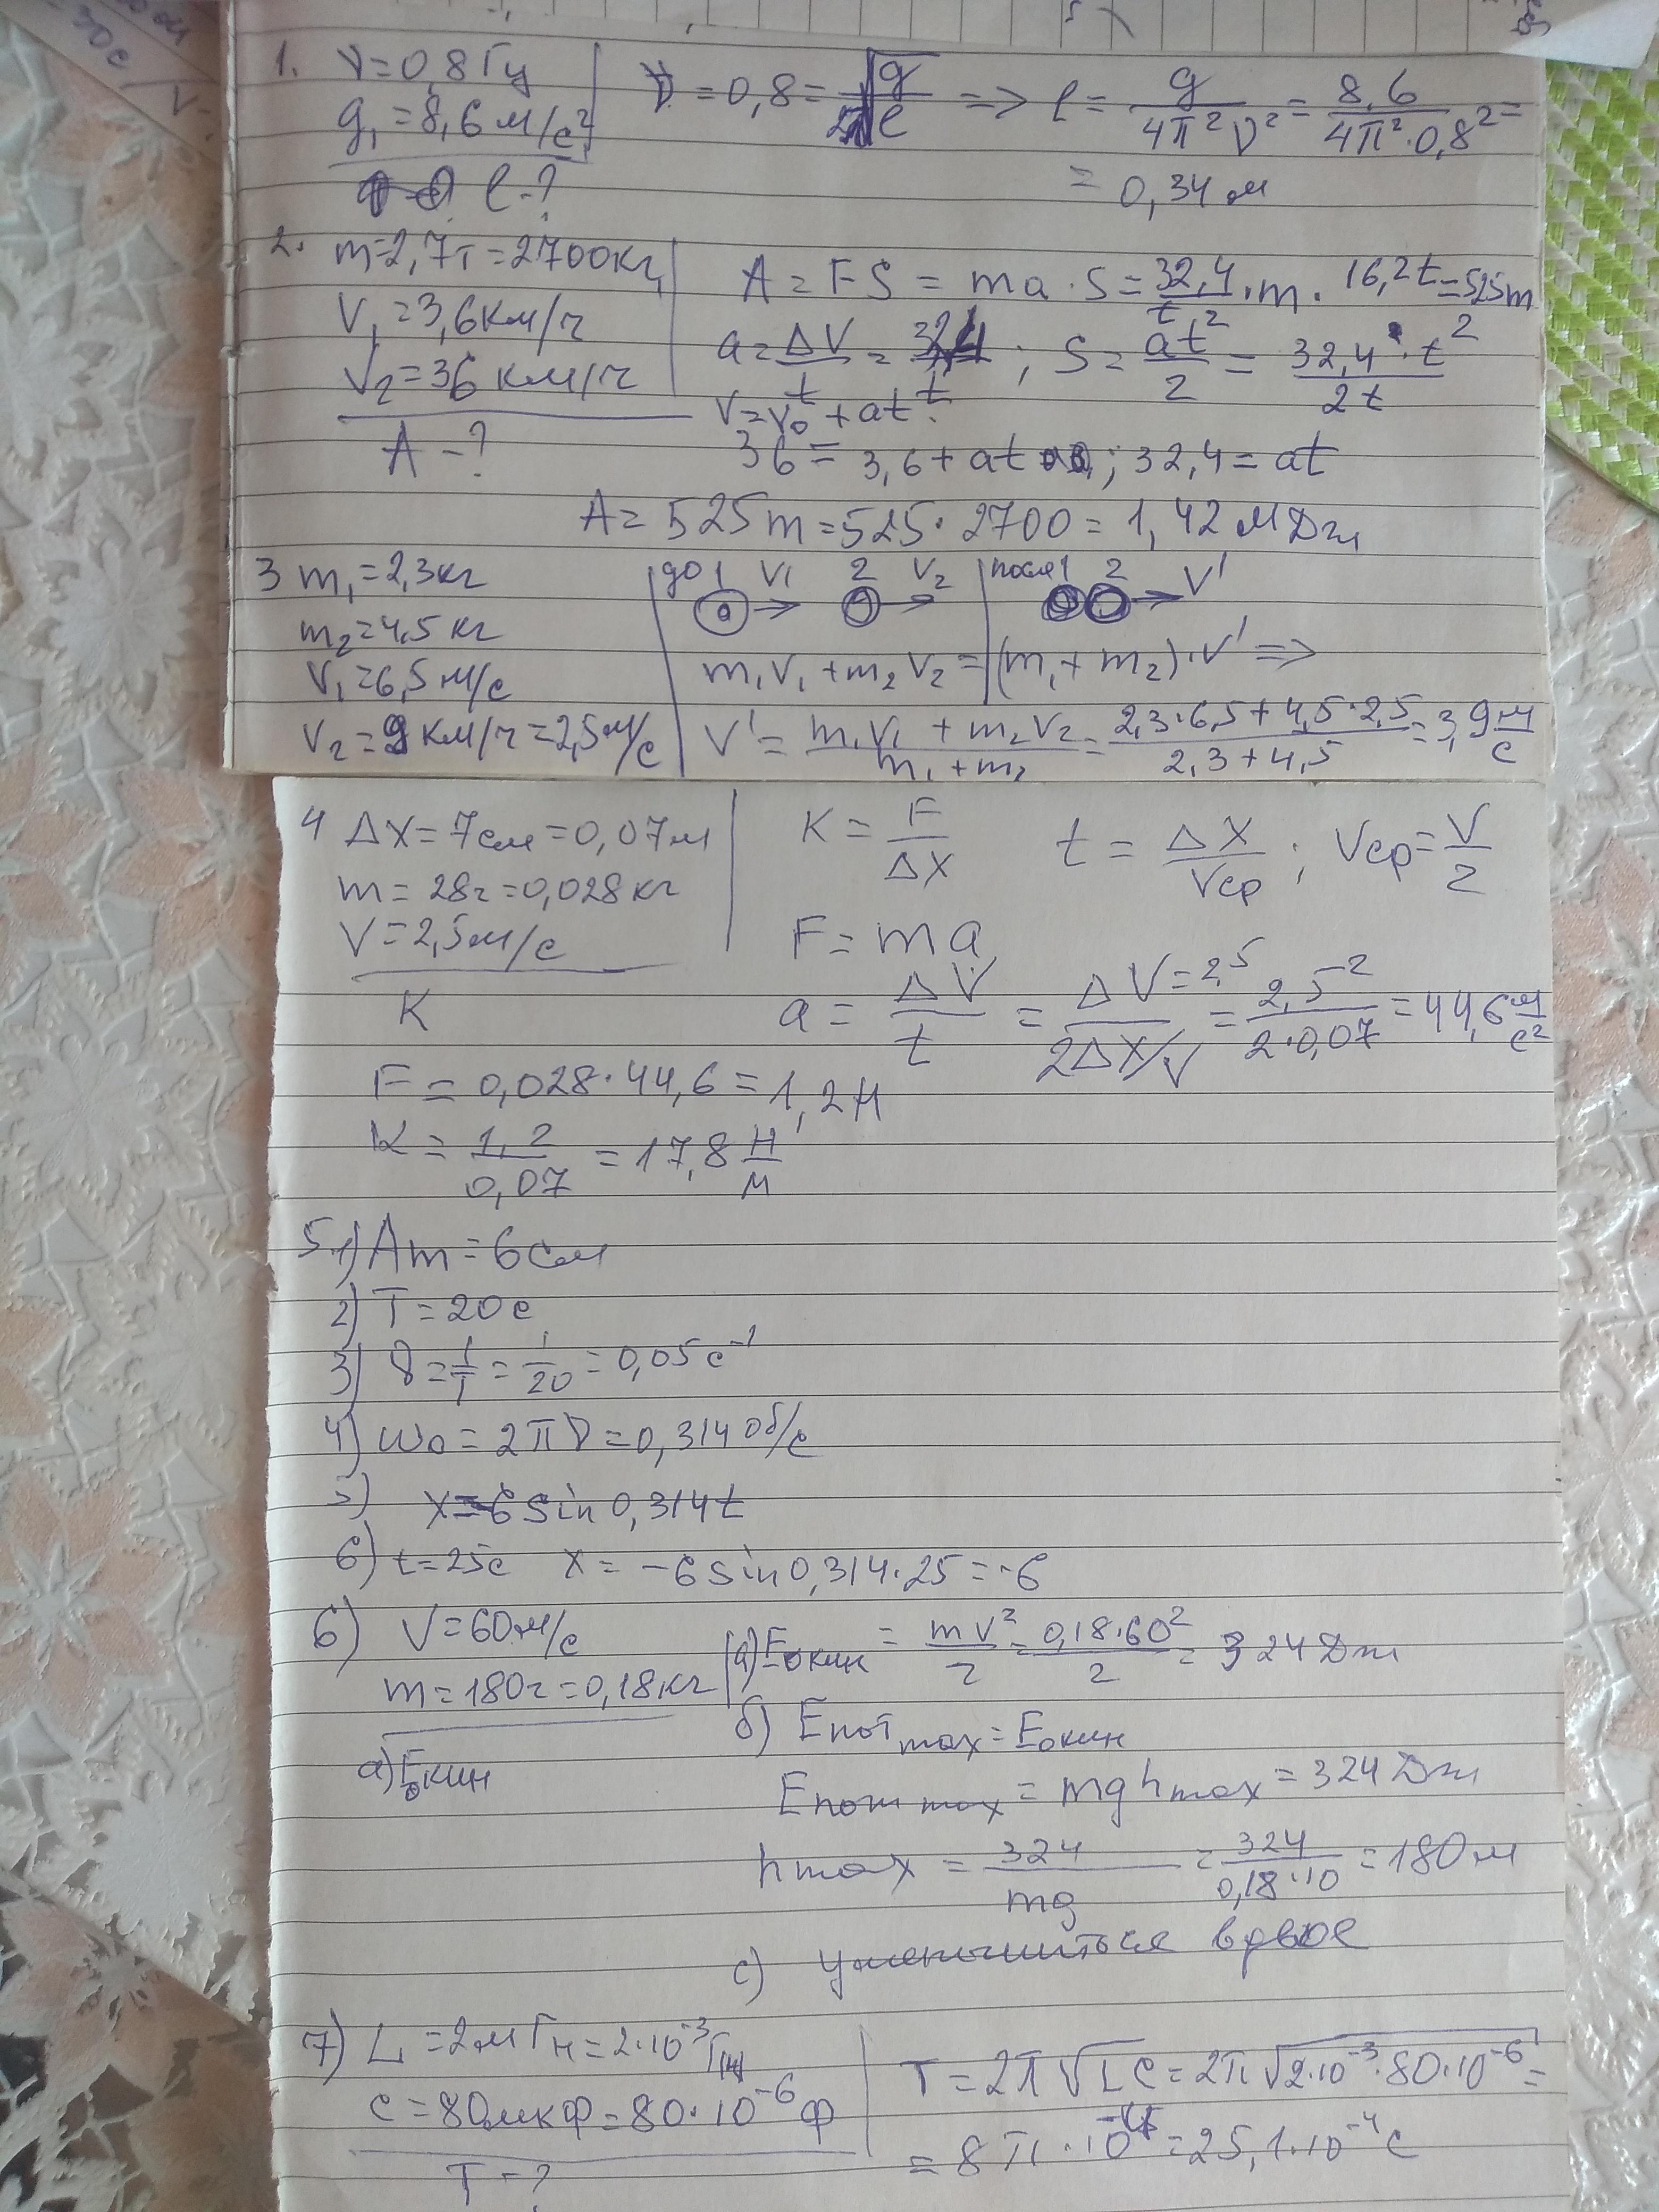 1. ν=0,8 Гц
g₁=8,6 м/с²
l-?
ν=0,8= √g/l => l= g/4π²ν² = 8,6/4π²·0,8² =
= 0,34 м
2. m=2,7т=2700кг
V₁=3,6км/ч
V₂=36 км/ч
A-?
A=FS=ma·S=32,4/t·m·16,2t=525m
a=ΔV/t= 32,4/t ; S=at²/2=32,4·t²/2t
V=V₀+at
36=3,6+at ; 32,4=at
A=525m=525·2700=1,42 МДж
3 m₁=2,3кг
m₂=4,5 кг
V₁=6,5 м/с
V₂=9 км/ч=2,5м/с
до 1 V₁ 2 V₂ | после 1 2 V'
m₁V₁+m₂V₂=(m₁+m₂)·V' =>
V'= m₁V₁+m₂V₂/m₁+m₂ = 2,3·6,5+4,5·2,5/2,3+4,5 =3,9 м/с
4 Δx=7см=0,07м
m=28г=0,028кг
V=2,5м/с
K
K=F/Δx t=Δx/Vср ; Vср=V/2
F=ma
a=ΔV/t = ΔV=2,5/2Δx/V = 2,5²/2·0,07 =44,6 м/с²
F=0,028·44,6=1,2Н
K=1,2/0,07=17,8 Н/м
5. 1) Am=6см
2) T=20с
3) ν=1/T=1/20=0,05с⁻¹
4) ω₀=2πν=0,314 об/с
5) x=-6 sin 0,314t
6) t=25с x=-6 sin 0,314·25=-6
6) V=60м/с
m=180г=0,18кг
а) E₀кин
а) E₀кин = mV²/2=0,18·60²/2=324 Дж
б) Eпот max=E₀кин
Eпот max=mghmax=324 Дж
hmax=324/mg=324/0,18·10=180м
с) уменьшиться вдвое
7) L=2мГн=2·10⁻³Гн
C=80мкФ=80·10⁻⁶Ф
T-?
T=2π√LC=2π√2·10⁻³·80·10⁻⁶=
=8π·10⁻⁴=25,1·10⁻⁴с